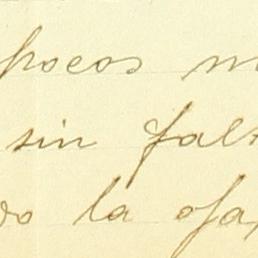 pocos m
sin falt
do la ofa